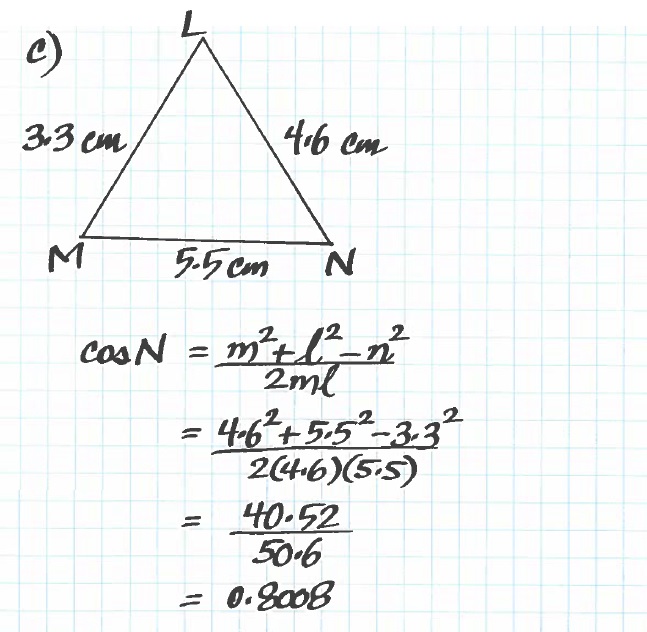 c)
L
3.3 cm
4.6 cm
M
5.5 cm
N
cos N = (m² + l² - n²) / 2ml
= (4.6² + 5.5² - 3.3²) / 2(4.6)(5.5)
= 40.52 / 50.6
= 0.8008